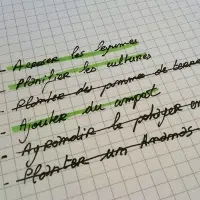 - Arroser les légumes
- Planifier les cultures
- Planter des pommes de terre
- Ajouter du compost
- Agrandir le potager en
- Planter un Ananas